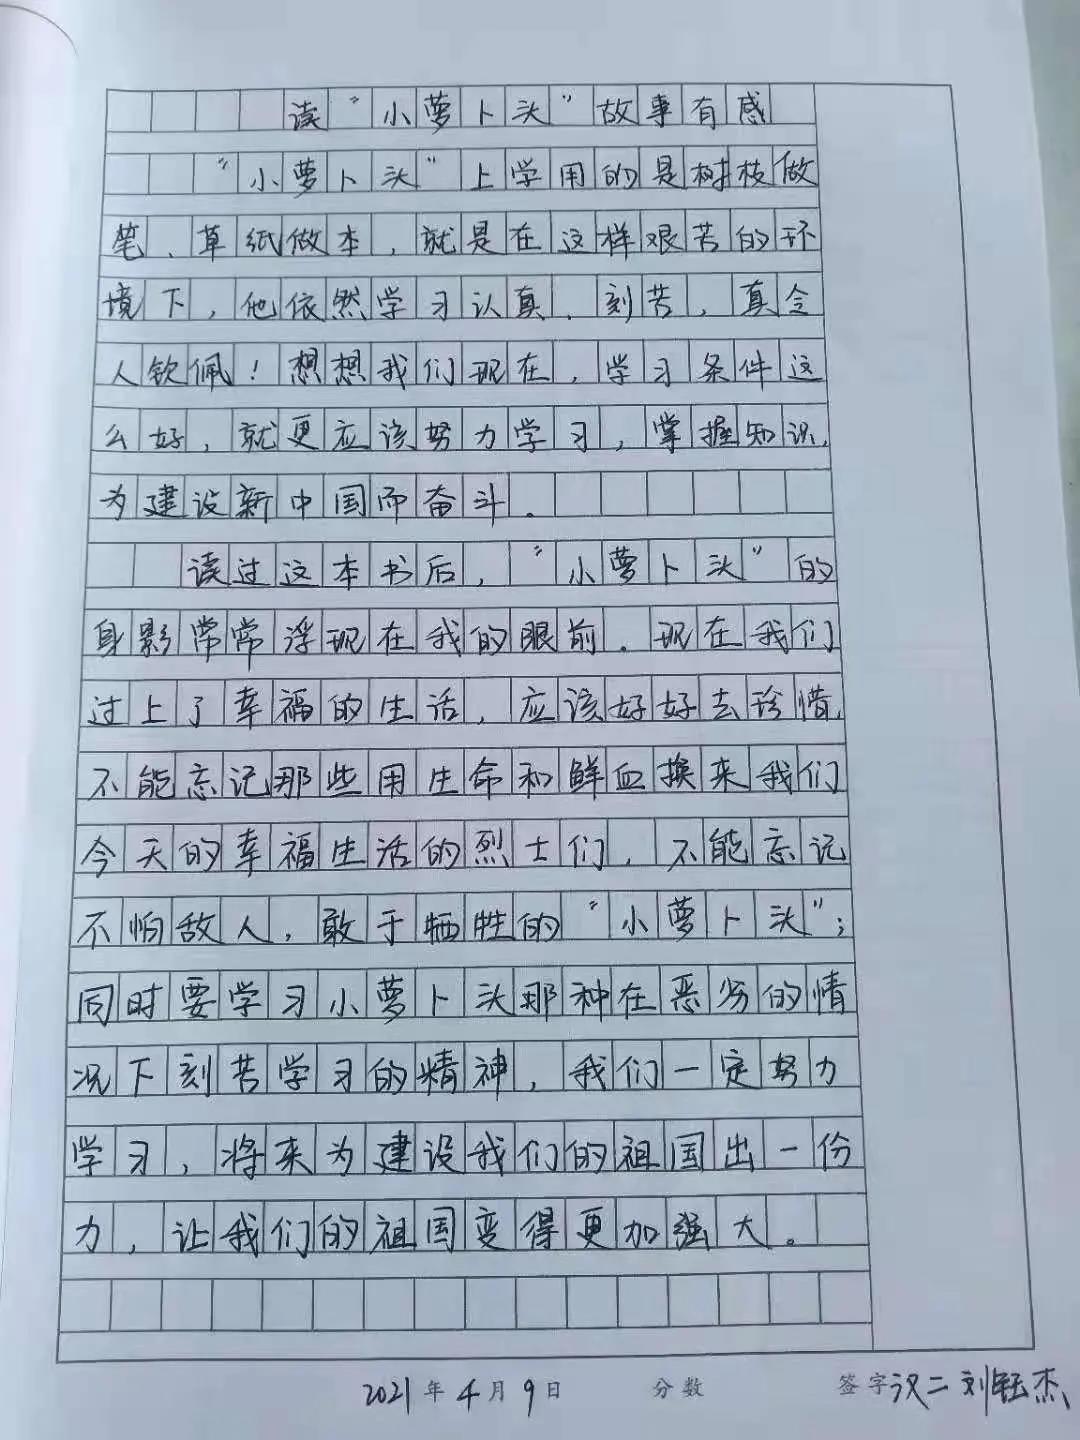 读“小萝卜头”故事有感
“小萝卜头”上学用的是树枝做
笔、草纸做本,就是在这样艰苦的环
境下,他依然学习认真、刻苦,真令
人钦佩!想想我们现在,学习条件这
么好,就更应该努力学习,掌握知识,
为建设新中国而奋斗。
读过这本书后,“小萝卜头”的
身影常常浮现在我的眼前。现在我们
过上了幸福的生活,应该好好去珍惜,
不能忘记那些用生命和鲜血换来我们
今天的幸福生活的烈士们,不能忘记
不怕敌人,敢于牺牲的“小萝卜头”;
同时要学习小萝卜头那种在恶劣的情
况下刻苦学习的精神,我们一定努力
学习,将来为建设我们的祖国出一份
力,让我们的祖国变得更加强大。
2021年4月9日 分数 签字汉二 刘钰杰